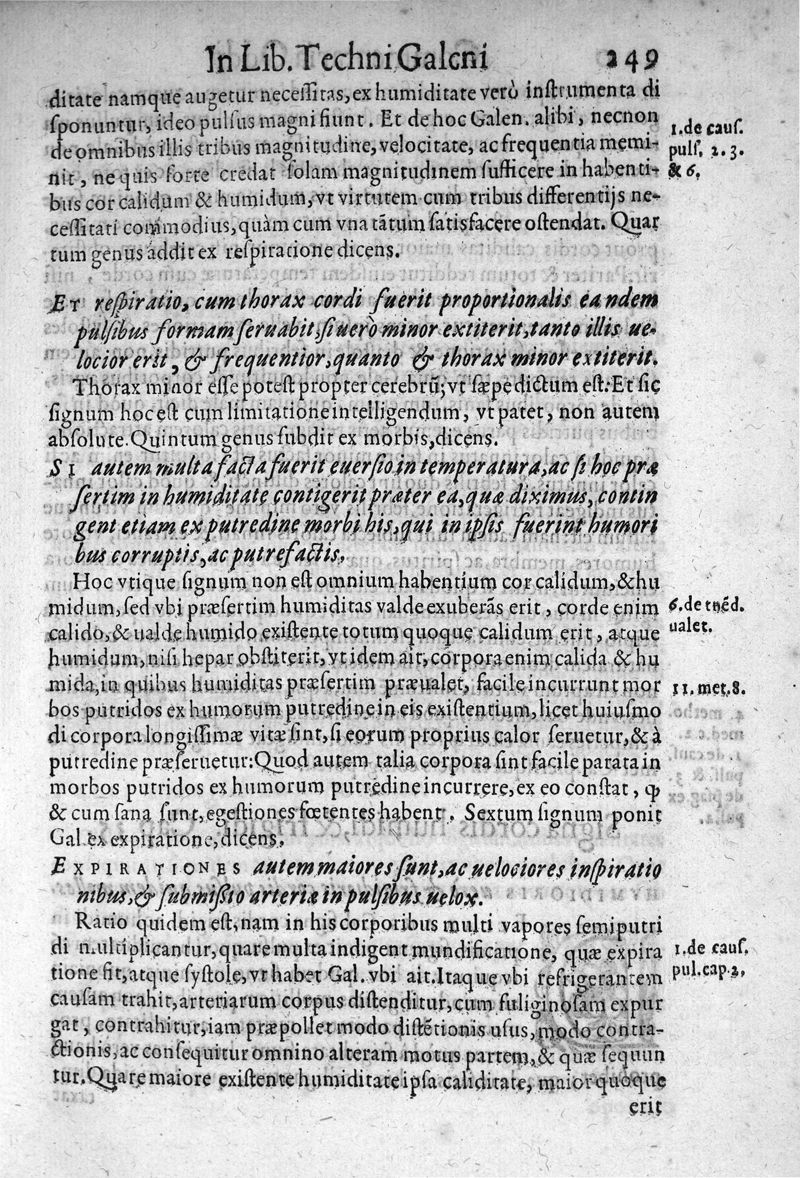 In Lib. Techni Galeni 249
ditate namque augetur necessitas, ex humiditate verò instrumenta di
sponuntur, ideo pulsus magni fiunt. Et de hoc Galen. alibi, necnon
de omnibus illis tribus magnitudine, velocitate, ac frequentia memi-
nit, ne quis forte credat solam magnitudinem sufficere in habenti-
bus cor calidum & humidum, vt virtutem cum tribus differentijs ne-
cessitati commodius, quàm cum vna tãtum satisfacere ostendat. Quar
tum genus addit ex respiratione dicens.
1. de caus.
puls. 2. 3.
& 6.
ET respiratio, cum thorax cordi fuerit proportionalis eandem
pulsibus formam seruabit, si uerò minor extiterit, tanto illis ue-
locior erit, & frequentior, quanto & thorax minor extiterit.
Thorax minor esse potest propter cerebrũ; vt sæpe dictum est. Et sic
signum hoc est cum limitatione intelligendum, vt patet, non autem
absolute. Quintum genus subdit ex morbis, dicens.
SI autem multa facta fuerit euersio in temperatura, ac si hoc præ
sertim in humiditate contigerit præter ea, quæ diximus, contin
gent etiam ex putredine morbi his, qui in ipsis fuerint humori
bus corruptis, ac putrefactis.
Hoc vtique signum non est omnium habentium cor calidum, & hu
midum, sed vbi præsertim humiditas valde exuberãs erit, corde enim
calido, & ualde humido existente totum quoque calidum erit, atque
humidum, nisi hepar obstiterit, vt idem ait, corpora enim calida & hu
mida, in quibus humiditas præsertim præualet, facile incurrunt mor
bos putridos ex humorum putredine in eis existentium, licet huiusmo
di corpora longissimæ vitæ sint, si eorum proprius calor seruetur, & à
putredine præseruetur: Quod autem talia corpora sint facile parata in
morbos putridos ex humorum putredine incurrere, ex eo constat, ꝙ
& cum sana sunt, egestiones fœtentes habent. Sextum signum ponit
Gal. ex expiratione, dicens.
6. de tuẽd.
ualet.
11. met. 8.
EXPIRATIONES autem maiores sunt, ac uelociores inspiratio
nibus, & submissio arteriæ in pulsibus uelox.
Ratio quidem est, nam in his corporibus multi vapores semiputri
di multiplicantur, quare multa indigent mundificatione, quæ expira
tione fit, atque systole, vt habet Gal. vbi ait. Itaque vbi refrigerantem
causam trahit, arteriarum corpus distenditur, cum fuliginosam expur
gat, contrahitur, iam præpollet modo distẽtionis usus, modo contra-
ctionis, ac consequitur omnino alteram motus partem, & quæ sequun
tur. Quare maiore existente humiditate ipsa caliditate, maior quoque
erit
1. de caus.
pul. cap. 2.